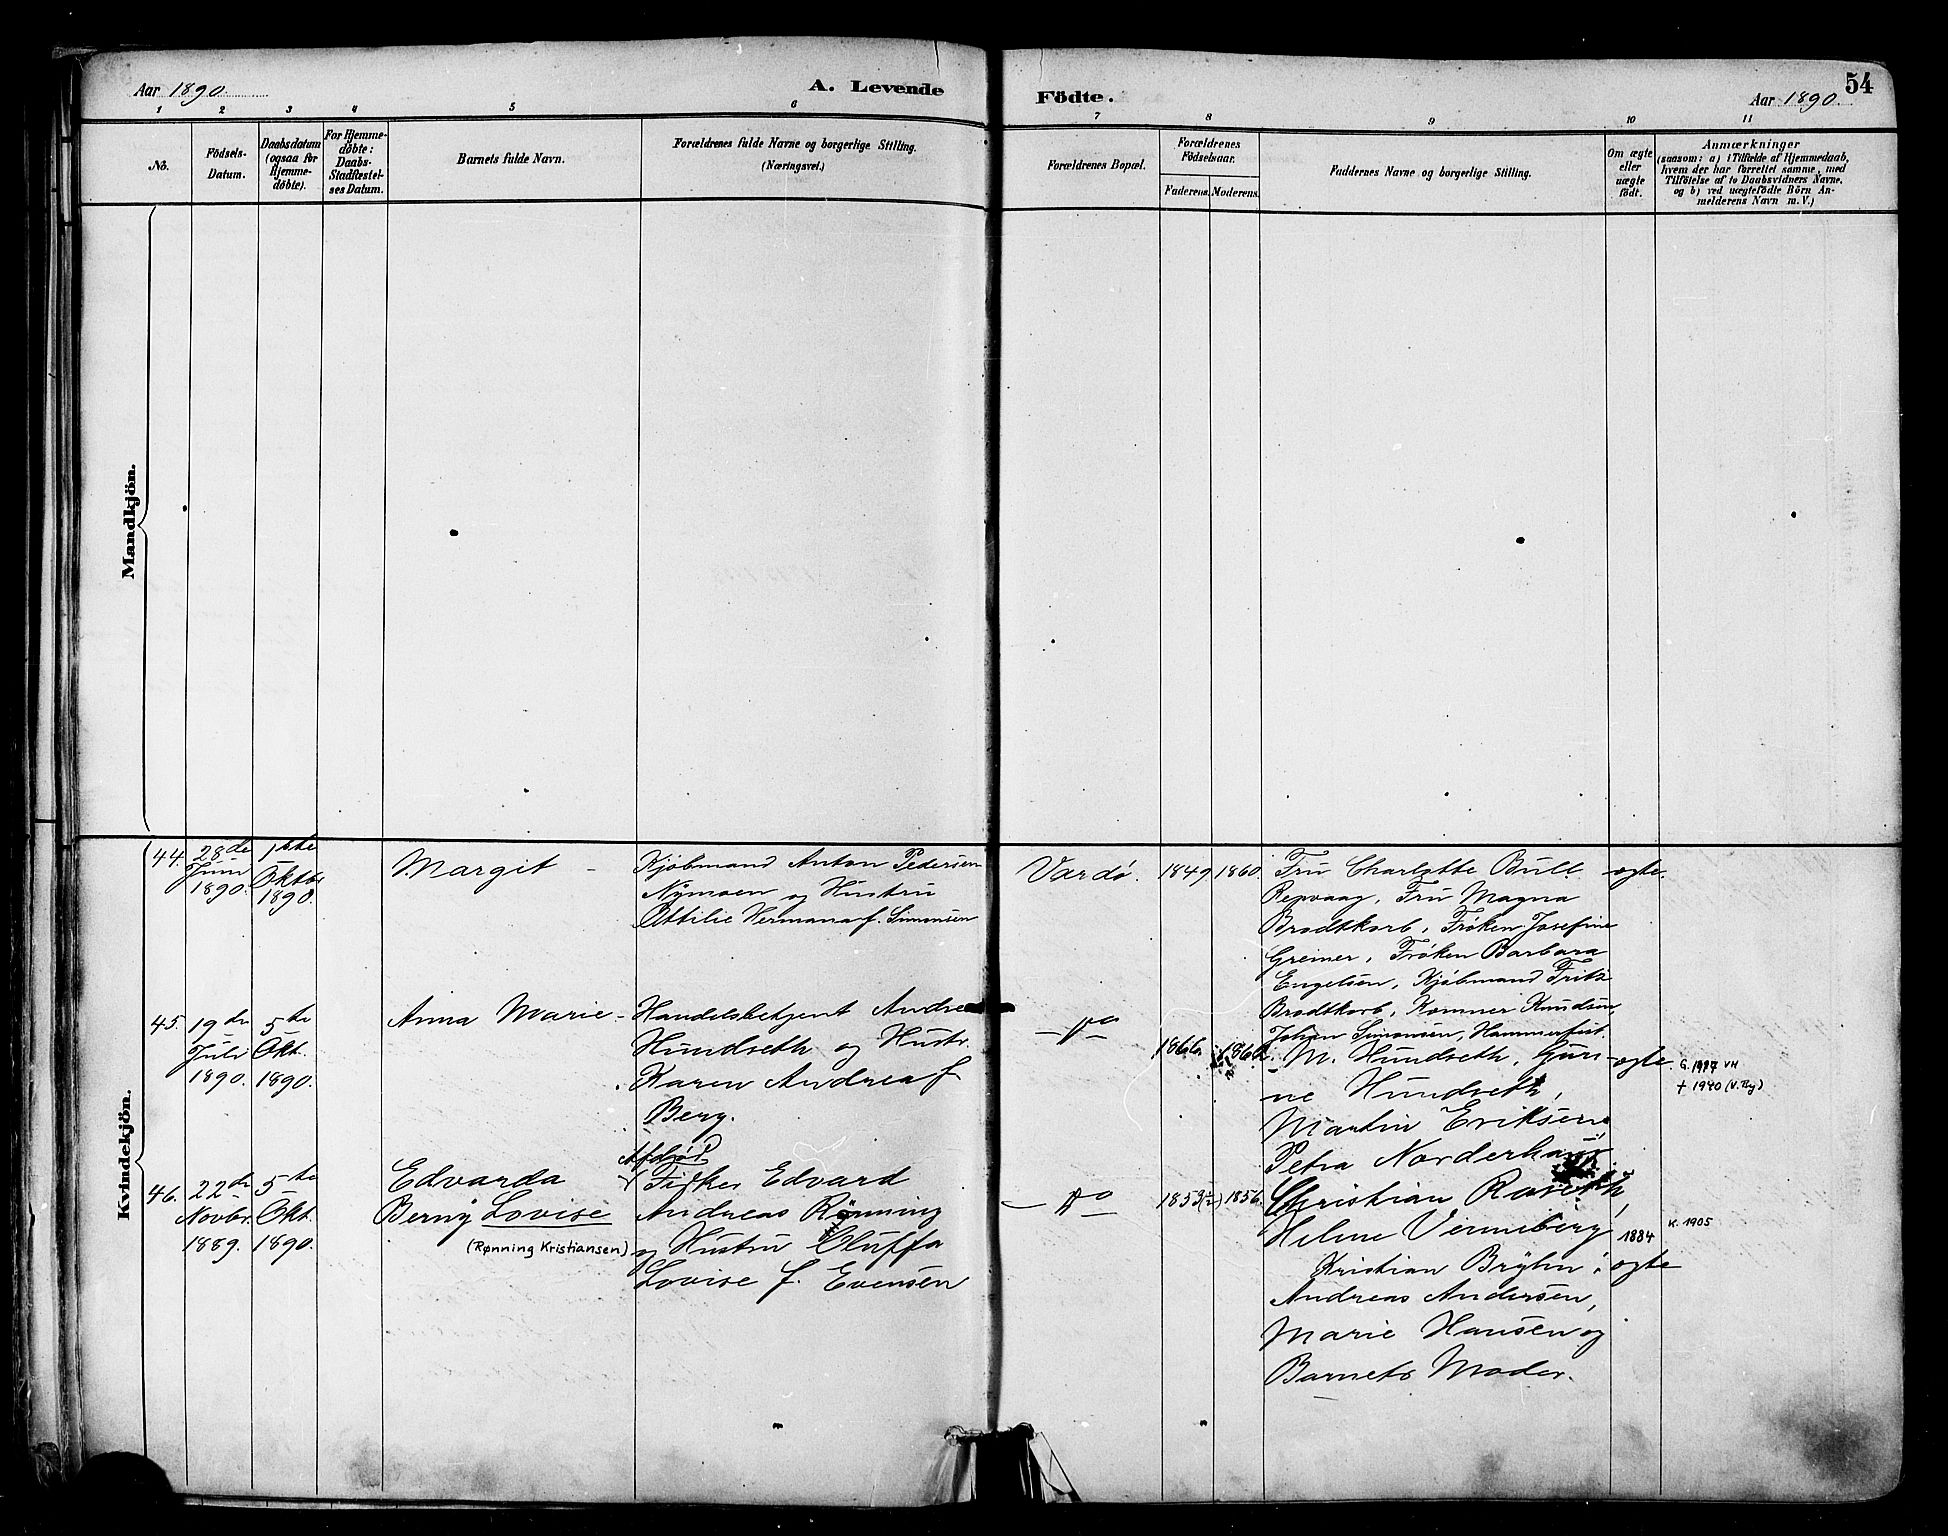 Aar 1890.
A. Levende
Födte.
Aar 1890.
54
1
2
3
4
5
6
7
8
9
10
11
No.
Födsels-
Datum.
Daabsdatum
(ogsaa for
Hjemme-
döbte).
For Hjemme-
döbte:
Daabs-
Stadfæstel-
ses Datum.
Barnets fulde Navn.
Forældrenes fulde Navne og borgerlige Stilling.
(Næringsvei.)
Forældrenes Bopæl.
Forældrenes
Födselsaar.
Faderens.
Moderens.
Faddernes Navne og borgerlige Stilling.
Om ægte
eller
uægte
födt.
Anmærkninger
(saasom: a) i Tilfælde af Hjemmedaab,
hvem der har forrettet samme, med
Tilföielse af to Daabsvidners Navne,
og b) ved uægtefödte Börn An-
melderens Navn m. V.)
Mandkjön.
Kvindekjön.
44.
28de
Juni
1890.
1ste
Oktbr
1890.
Margit -
Kjøbmand Anton Pedersen
Nymoen og Hustru
Ottilie Hermana f. Simonsen
Vardø.
1849
1860.
Fru Charlotte Bull
Repvaag, Fru Magna
Brodtkorb, Frøken Josefine
Greiner, Frøken Barbara
Engelsen, Kjøbmand Frits
Brodtkorb, Kømner Knudsen,
Johan Simonsen, Hammerfest.
ægte.
45.
19de
Juli
1890.
5te
Okt.
1890.
Anna Marie -
Handelsbetjent Andreas
Hundseth og Hustr.
Karen Andrea f.
Berg.
- Do -
1866.
M. Hundseth, Guri-
ne Hundseth,
Martin Eriksen
Petra Norderhaus
ægte.
+ 1940
46.
22de
Novbr.
1889.
5te
Okt.
1890.
Edvarda
Berny Lovise
(Rønning Kristiansen)
Afdød
Fisker Edvard
Andreas Rønning
og Hustru Oluffa
Lovise f. Evensen
- Do -
1856.
Christian Roseth,
Helene Venneberg
Kristian Brylin,
Andreas Andersen,
Marie Hansen og
Barnets Moder.
1884
ægte
K. 1905